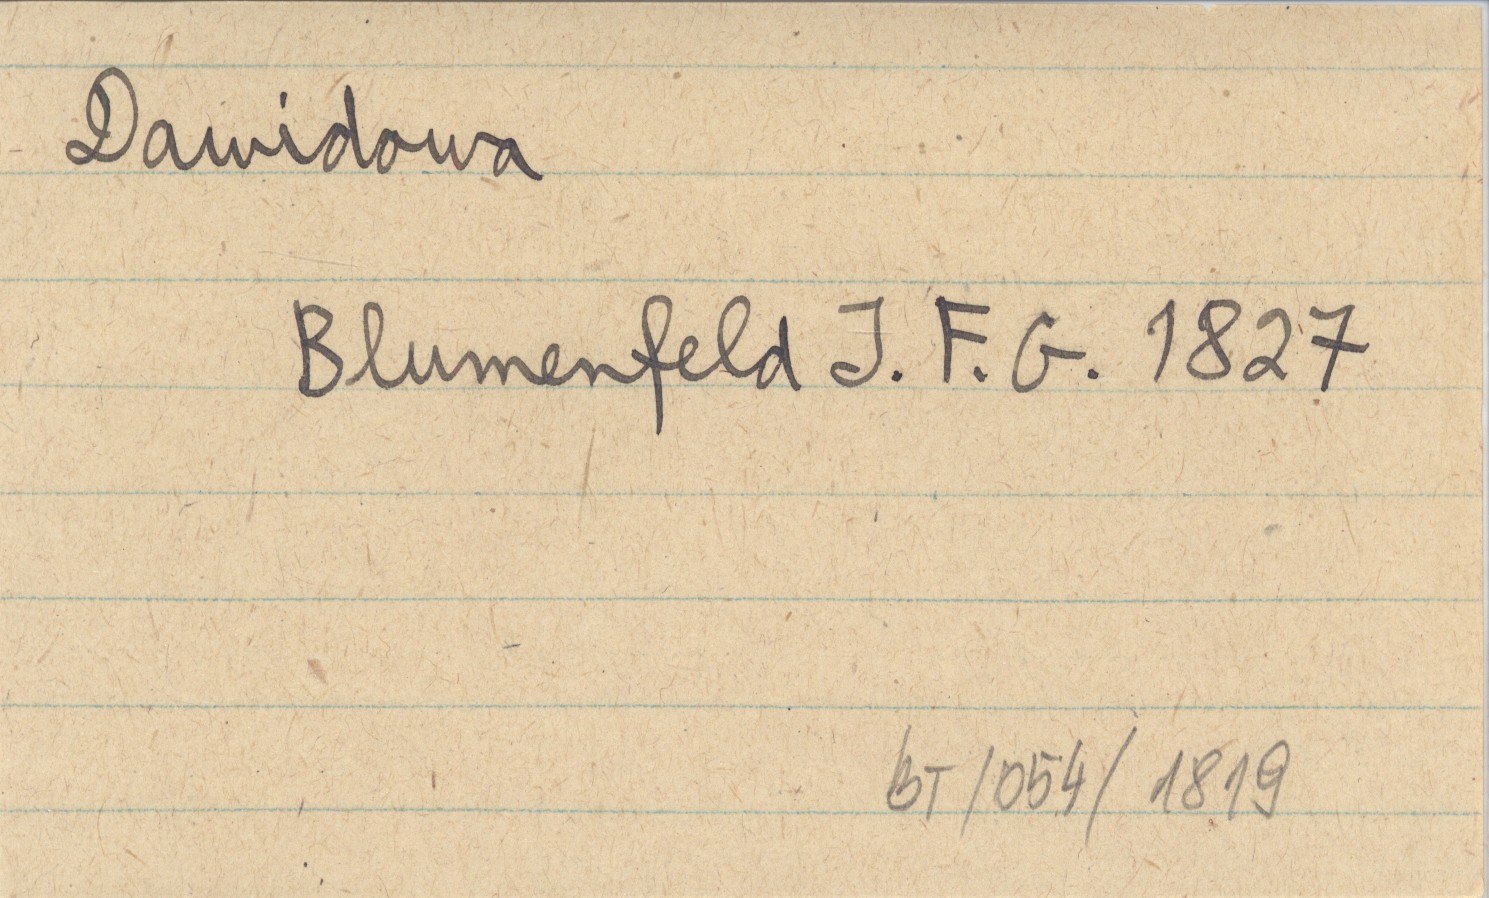 Dawidowa
Blumenfeld J. F. G. 1827
BT/054/1819